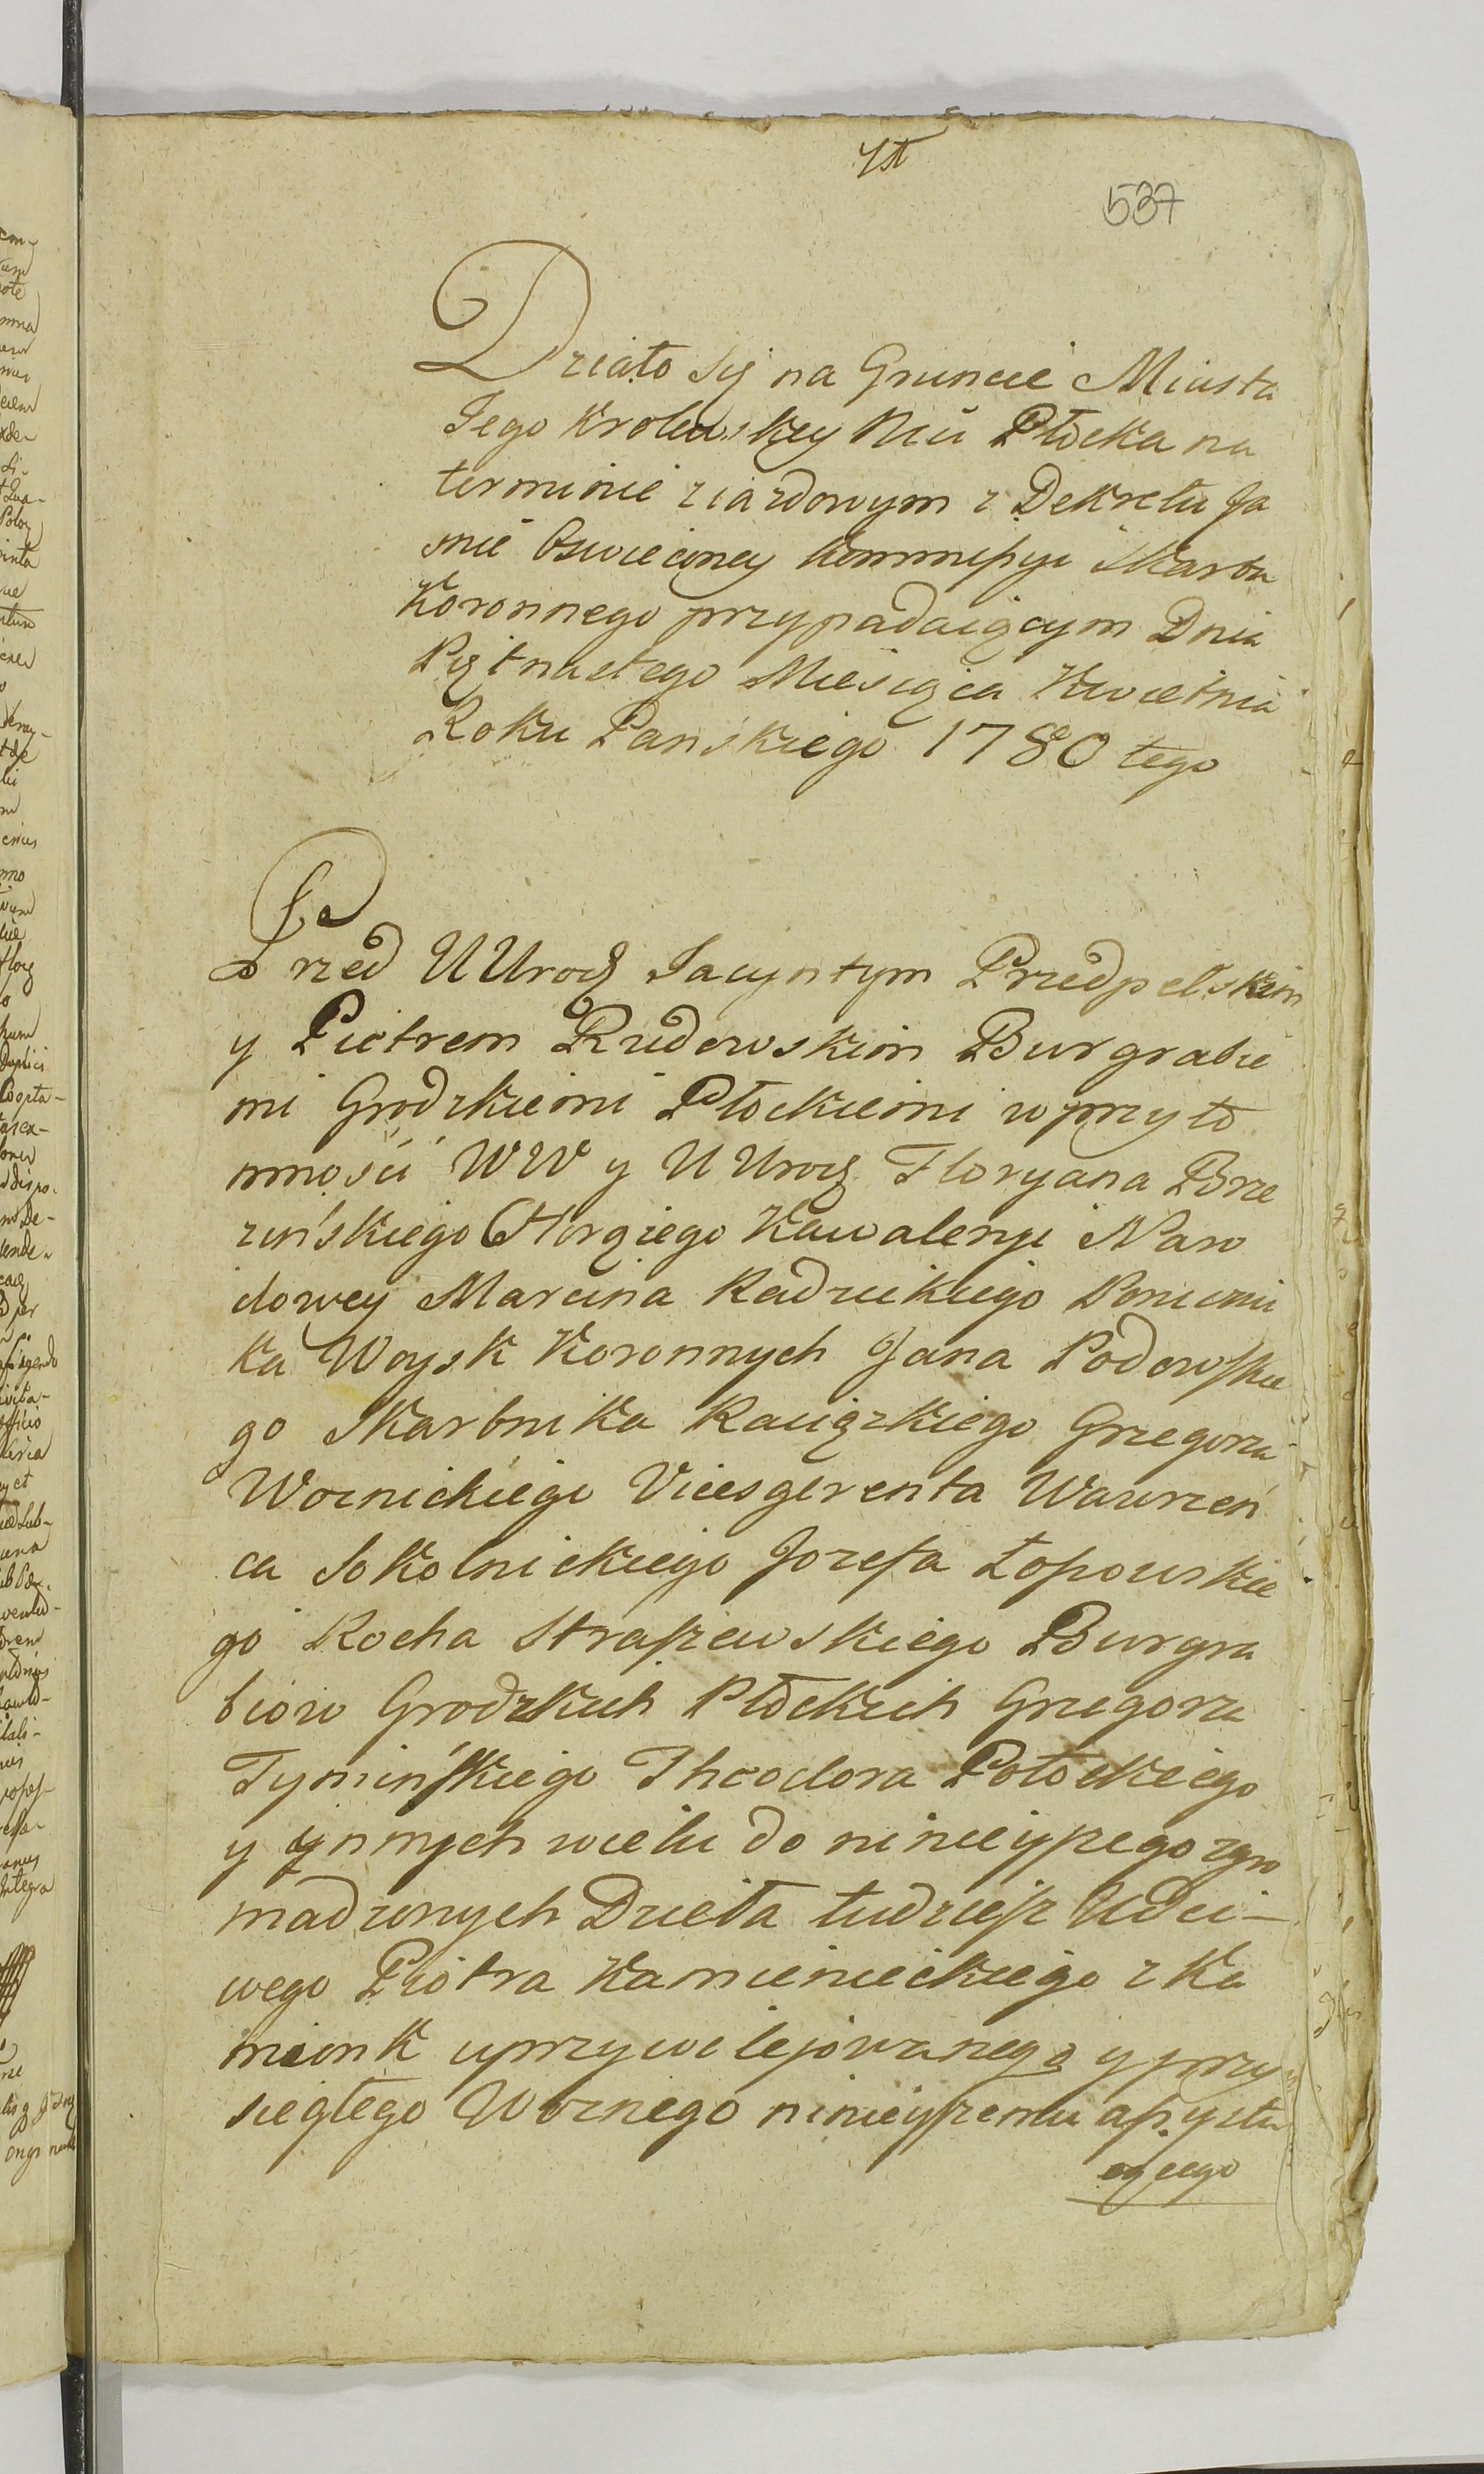 537
Działo się na Gruncie Miasta
Jego Krolewskey Mci Płocka na
terminie ziazdowym z Dekretu Ja
snie Oswieconey Kommissyi Skarbu
Koronnego przypadaiącym Dnia
Piętnastego Miesiąca Kwietnia
Roku Pańskiego 1780tego
Przed UUrodz Jacyntym Przedpełskim
y Piotrem Rudowskim Burgrabie
mi Grodzkiemi Płockiemi w przyto
mności WW y UUrodz Floryana Brze
zińskiego Chorążego Kawaleryi Naro
dowey Marcina Radzickiego Poruczni
ka Woysk Koronnych Jana Podowskie
go Skarbnika Raciązkiego Grzegorza
Woznickiego Vicesgerenta Wawrzeń
ca Sokolnickiego Jozefa Łopowskie
go Rocha Straszewskiego Burgra
biow Grodzkich Płockich Grzegorza
Tymińskiego Theodora Potockiego
y ynnych wielu do ninieyszego zgro
madzonych Dzieła tudziesz Uczci-
wego Piotra Kamienieckiego z Ka
mionk uprzywilejowanego y przy
sięgłego Woznego ninieyszemu assystu
iącego